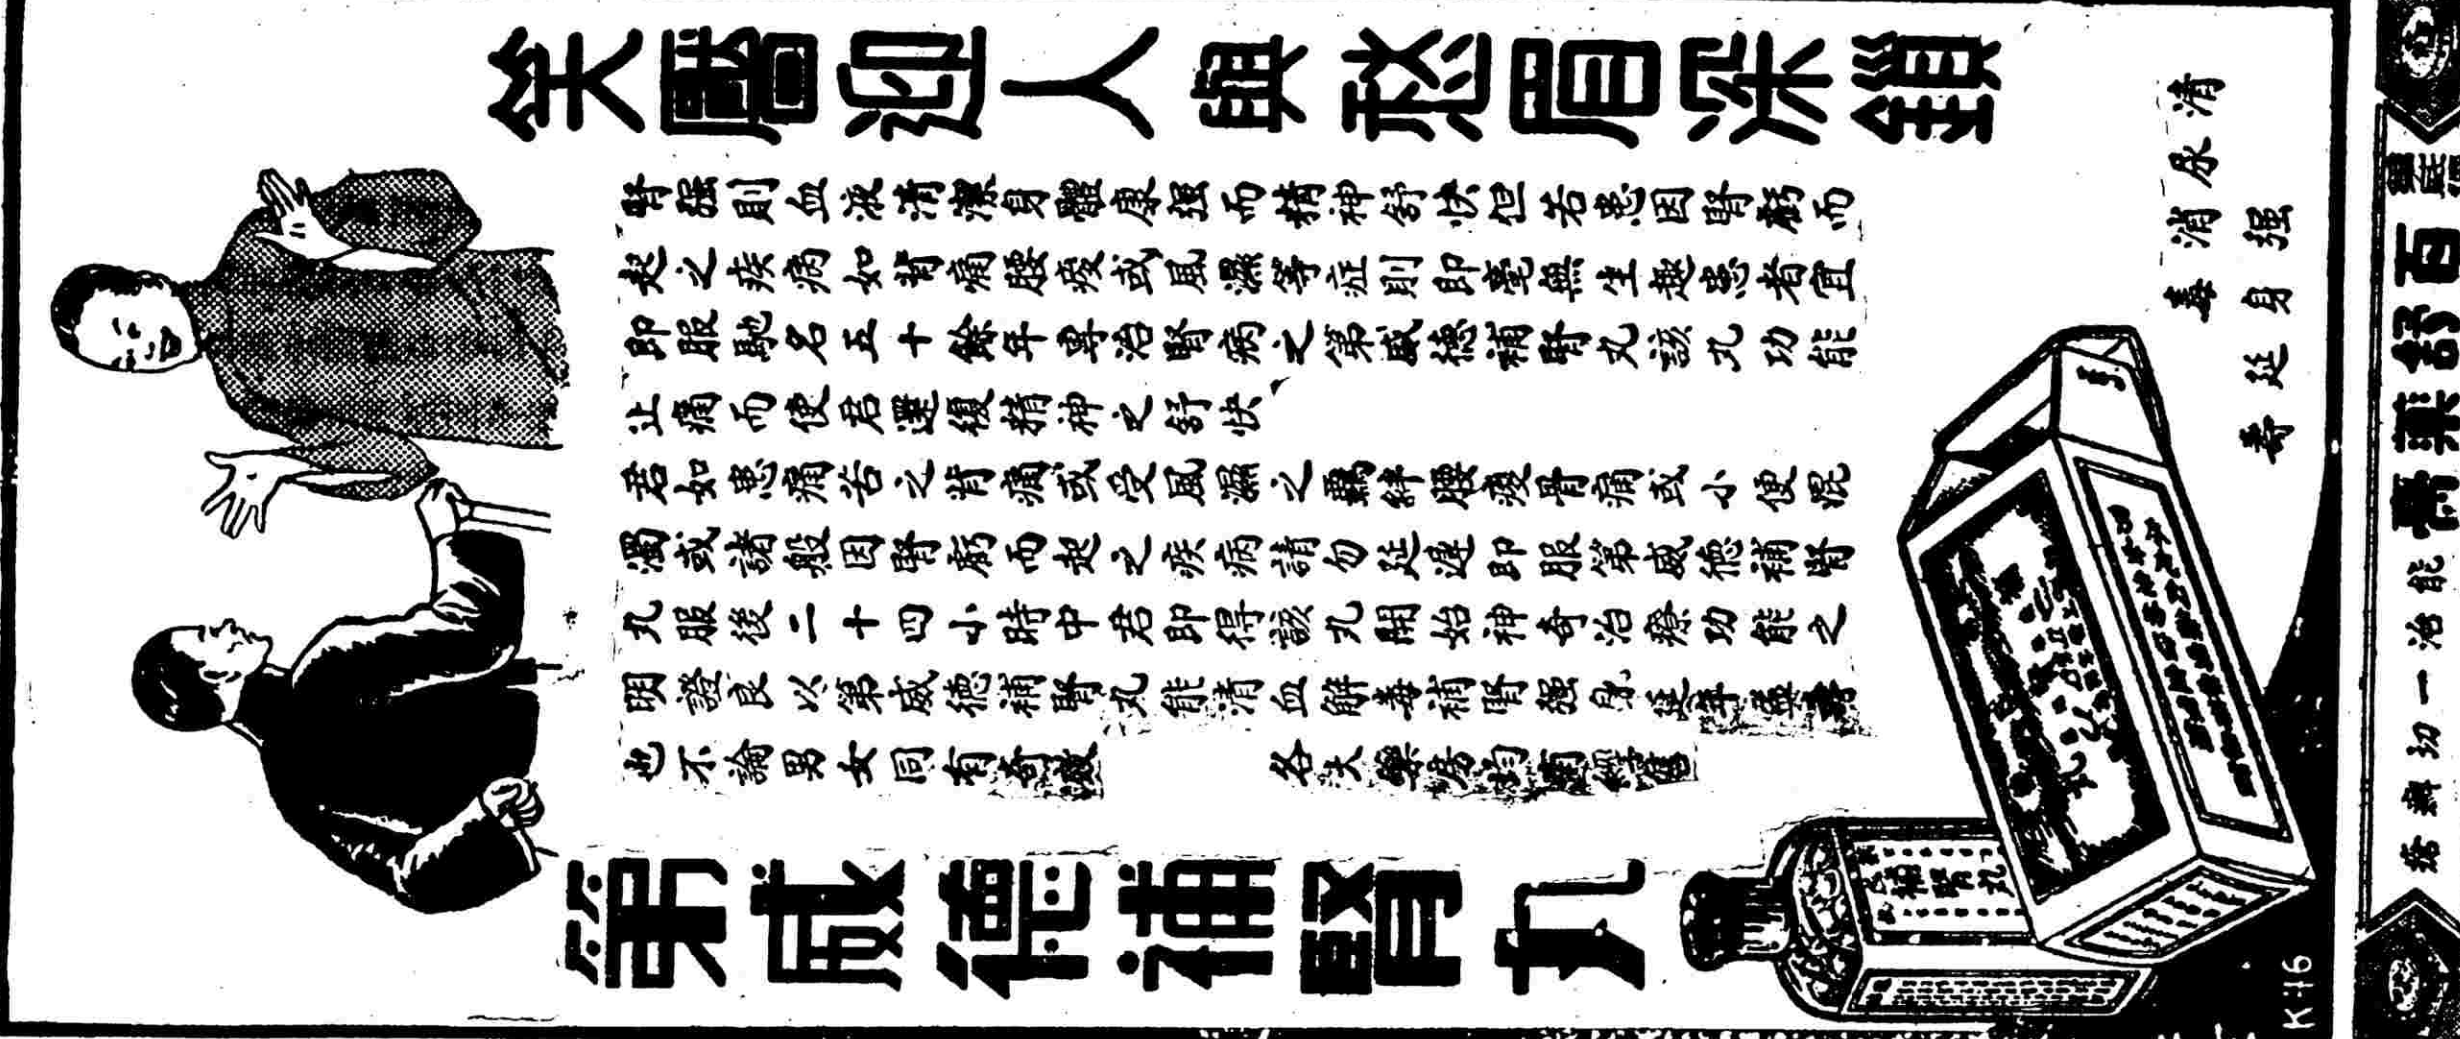 笑靨迎人與愁眉深鎖
腎强則血液清潔身體康强而精神舒快但若患因腎虧而
起之疾病如背痛腰痠或風濕等症則即毫無生趣患者宜
即服馳名五十餘年專治腎病之第威德補腎丸該丸功能
止痛而使君還復精神之舒快
君如患痛苦之背痛或受風濕之羈絆腰痠骨痛或小便混
濁或諸般因腎虧而起之疾病請勿延遲即服第威德補腎
丸服後二十四小時中君即得該丸開始神奇治療功能之
明證良以第威德補腎丸能清血解毒補腎强身延年益壽
也不論男女同有奇效
各大藥房均有經售
第威德補腎丸
清尿消毒
强身延壽
補腎丸
K-16
能治一切